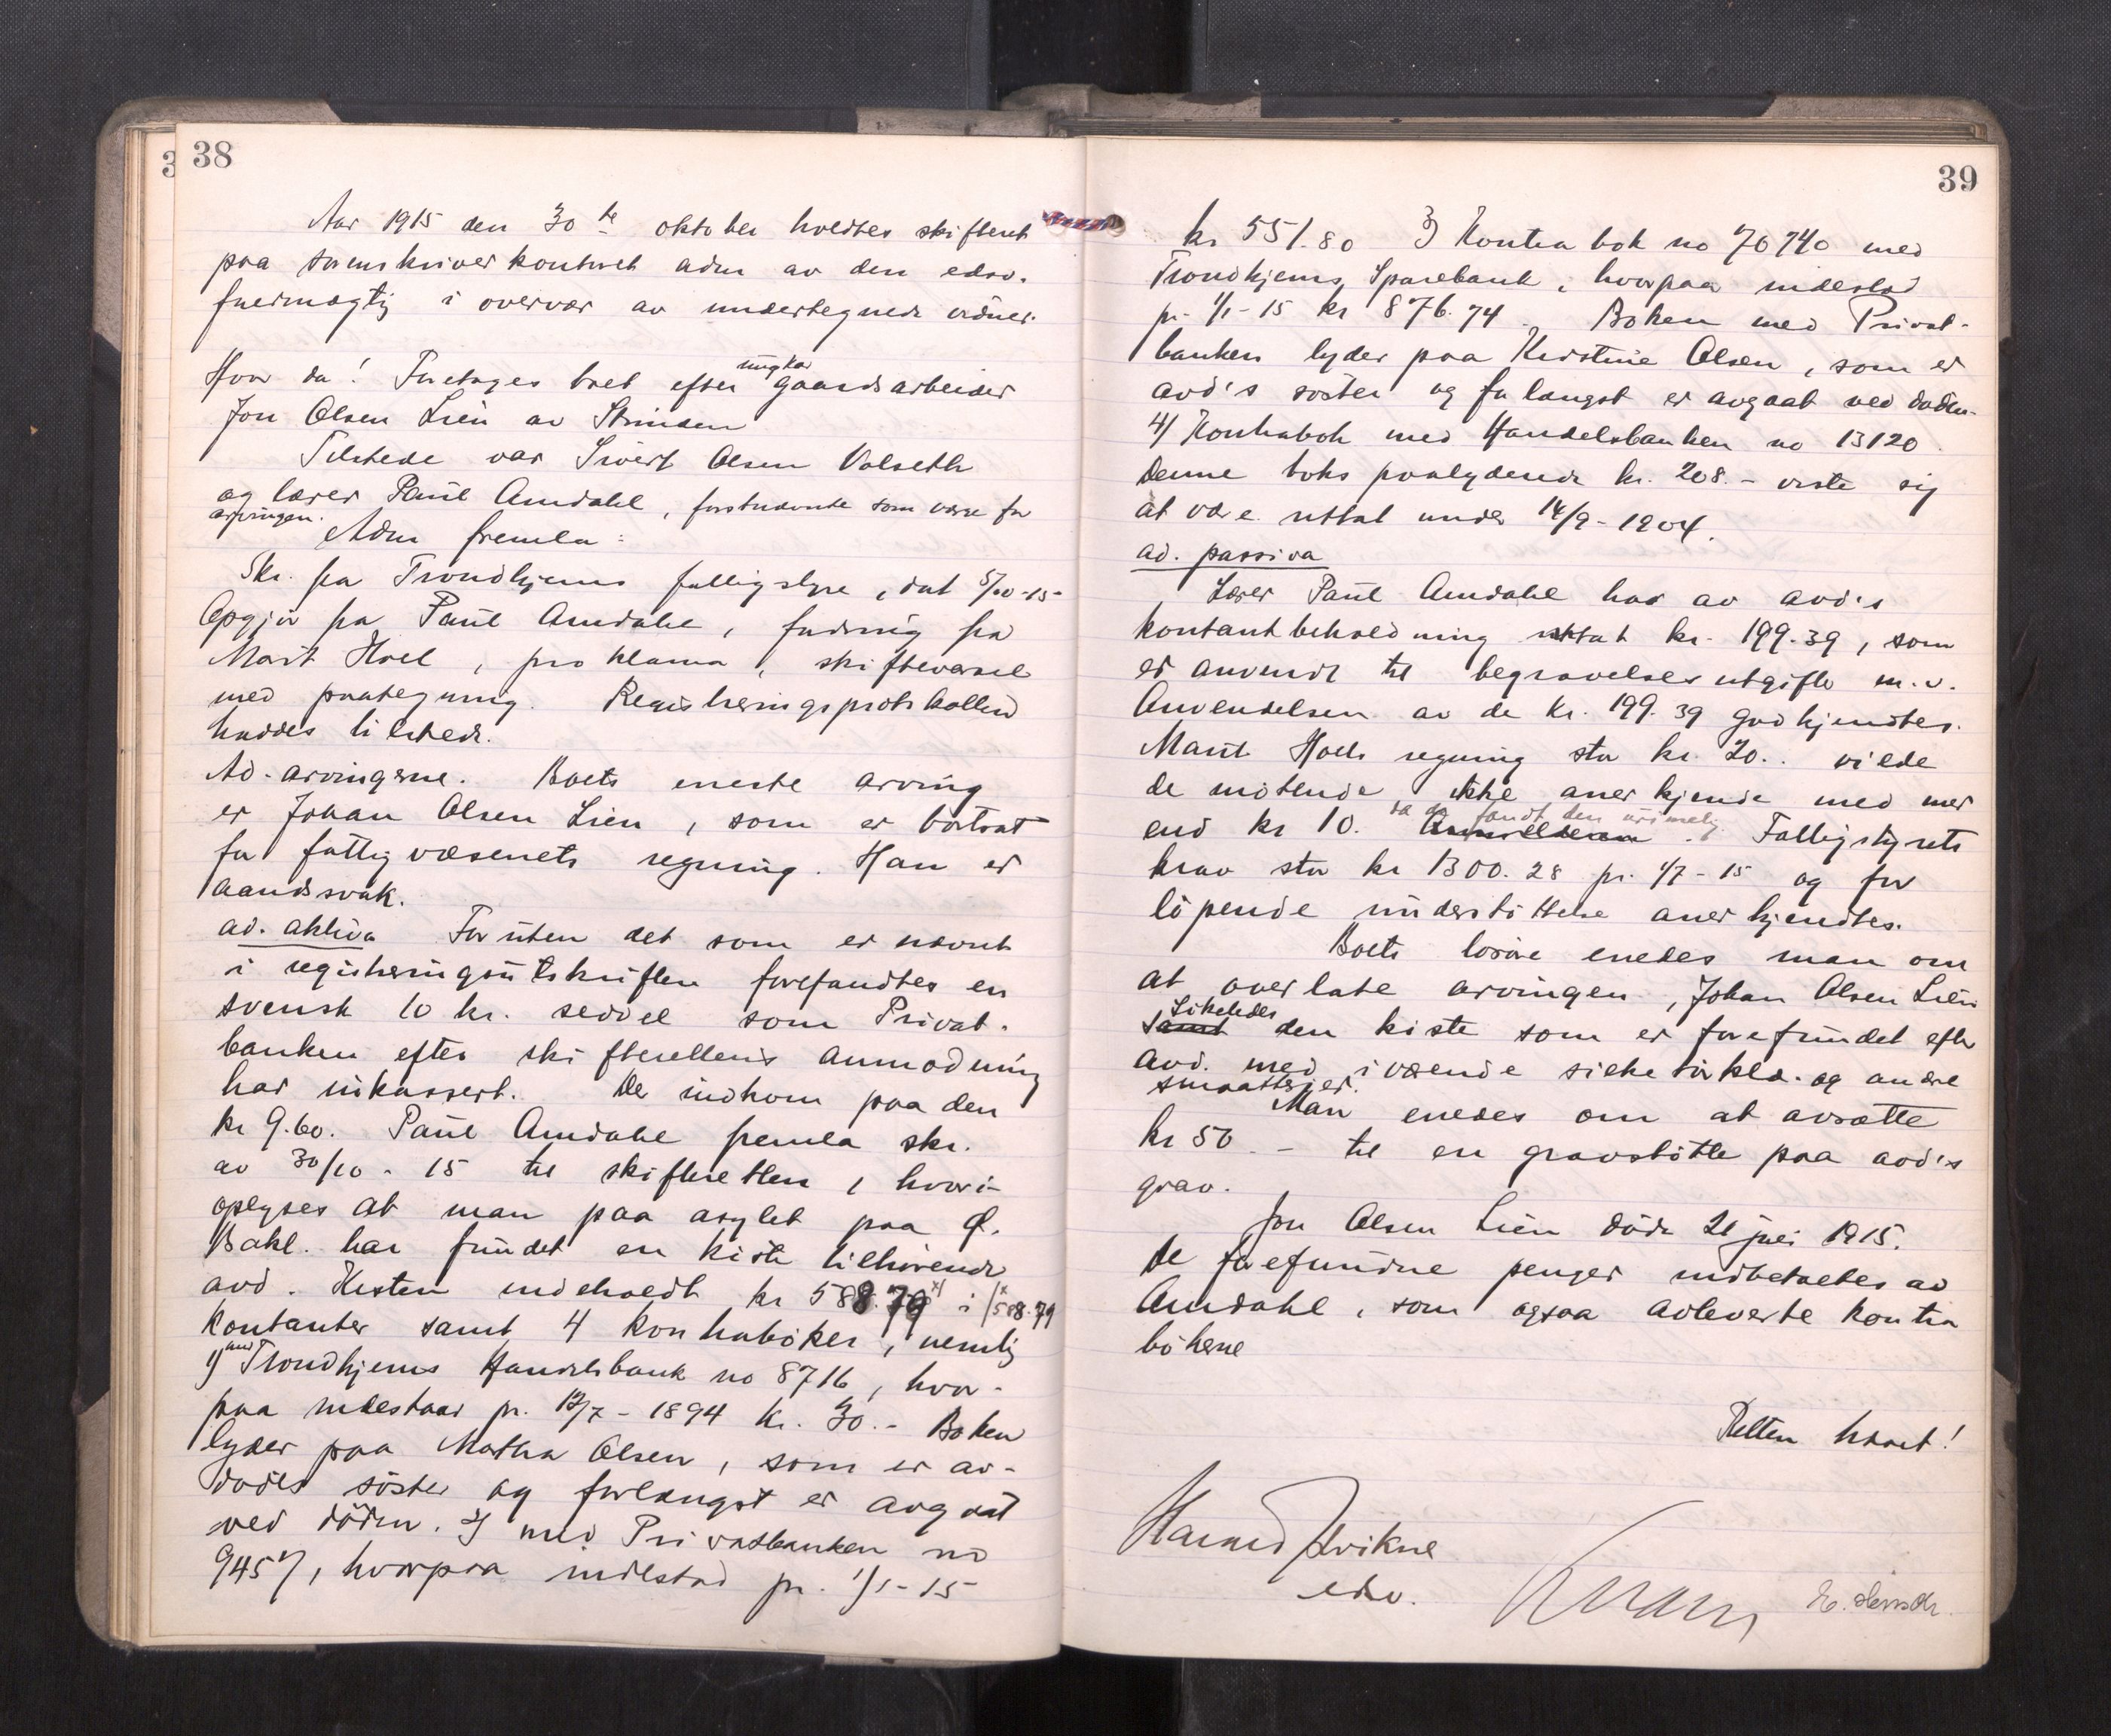 38
Aar 1915 den 30te oktober holdtes skifteret
paa sorenskriverkontoret adm av den edsv.
fuldmægtig i overvær av undertegnede vidner.
Hvor da! Foretages boet efter ungkar gaardsarbeider
Jon Olsen Lien av Strinden
Tilstede var Sivert Olsen Valseth
og lærer Paul Amdahl, forstnævnte som værge for
arvingen.
Adm fremla:
Skr. fra Trondhjems fattigstyre, dat 5/10-15-
Opgjør fra Paul Amdahl, fordring fra
Marit Hoel, proklama, skiftevarsel
med paategning. Registreringsprotokollen
haddes tilstede.
Ad. arvingerne. Boets eneste arving
er Johan Olsen Lien, som er bortsat
for fattigvæsenets regning. Han er
aandssvak.
ad. aktiva Foruten det som er nævnt
i registreringsutskriften forefandtes en
svensk 10 kr. seddel som Privat-
banken efter skifterettens anmodning
har inkassert. Der indkom paa den
kr 9.60. Paul Amdahl fremla skr.
av 30/10-15 til skifteretten, hvori
oplyses at man paa asylet paa Ø.
Bakl. har fundet en kiste tilhørende
avd. Kisten indeholdt kr 588.79 x) i /x 588.79
kontanter samt 4 kontrabøker, nemlig
1) med Trondhjems Handelsbank no 8716, hvor-
paa indestaar pr. 12/7-1894 kr. 30.- Boken
lyder paa Martha Olsen, som er av-
dødes søster og forlængst er avgaat
ved døden. 2) med Privatbanken no
9457, hvorpaa indestod pr. 1/1-15
39
kr 551.80 3) Kontrabok no 70740 med
Trondhjems Sparebank, hvorpaa indestod
pr. 1/1-15 kr 876.74. Boken med Privat-
banken lyder paa Kirstine Olsen, som er
avd's søster og for længst er avgaat ved døden.
4) Kontrabok med Handelsbanken no 13120.
Denne boks paalydende kr. 208.- viste sig
at være uttat under 14/9-1904.
ad. passiva
Lærer Paul Amdahl har av avd's
kontantbeholdning uttat kr. 199.39, som
er anvendt til begravelsesutgifter m.v.
Anvendelsen av de kr. 199.39 godkjendtes.
Marit Hoels regning stor kr. 20.. vilde
de møtende ikke anerkjende med mer
end kr 10. da de fandt den urimelig. Fattigstyrets
krav stor kr 1300.28 pr. 1/7-15 og for
løpende understøttelse anerkjendtes.
Boets løsøre enedes man om
at overlate arvingen, Johan Olsen Lien
samt Likeledes den kiste som er forefundet efter
avd. med iværende silketørklæ. og andre
smaatterier.
Man enedes om at avsætte
kr 50.- til en gravstøtte paa avd's
grav.
Jon Olsen Lien døde 21 juli 1915.
De forefundne penger indbetaltes av
Amdahl, som ogsaa avleverte kontra
bøkene
Retten hævet!
Kvikne
edsv.